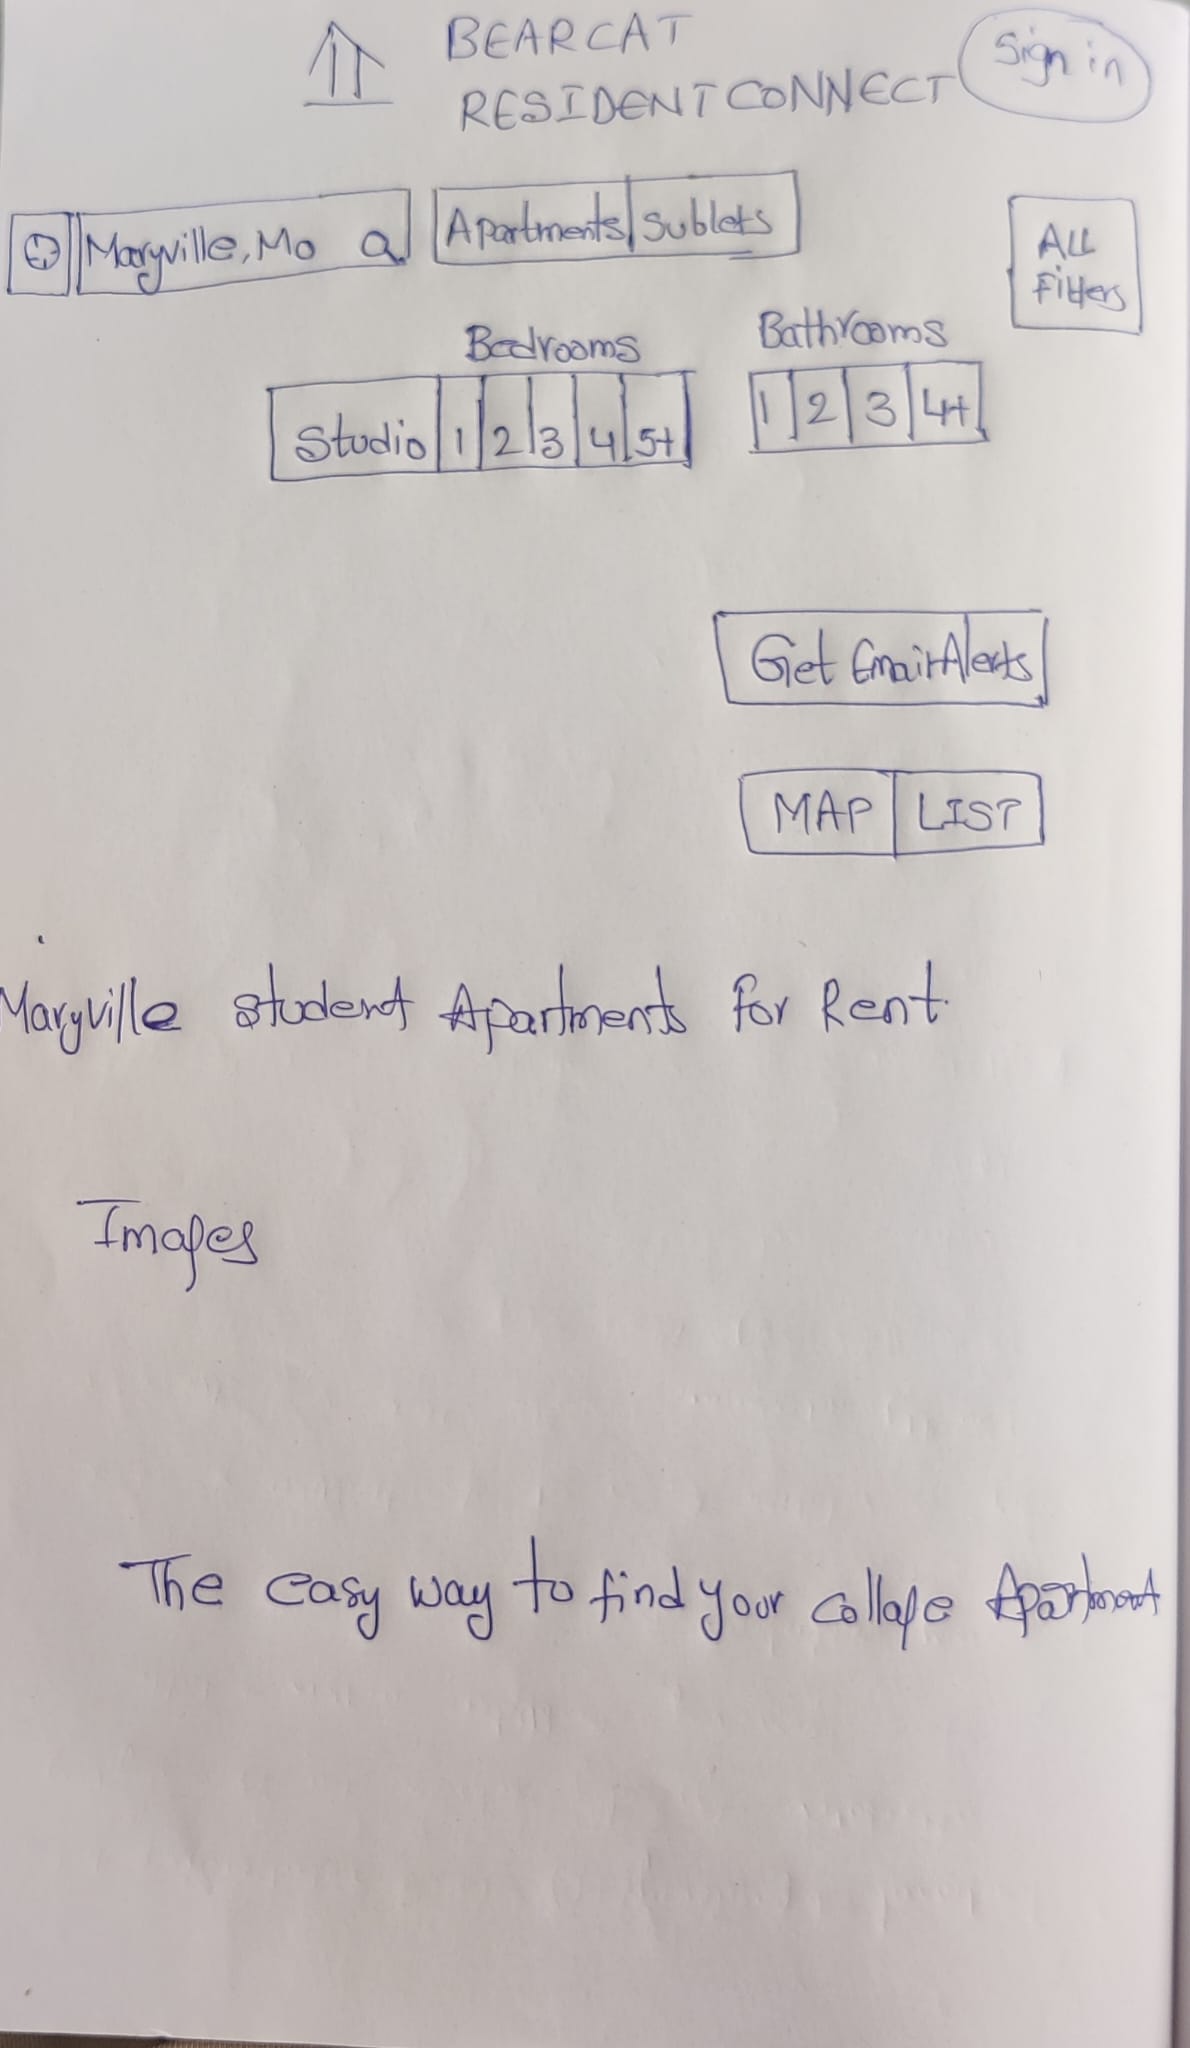 BEARCAT
RESIDENT CONNECT
Sign in
Maryville, Mo
Apartments Sublets
ALL
Filters
Bedrooms
Bathrooms
Studio 1 2 3 4 5+
1 2 3 4+
Get Email Alerts
MAP LIST
Maryville student Apartments for Rent.
Images
The easy way to find your collage Apartment